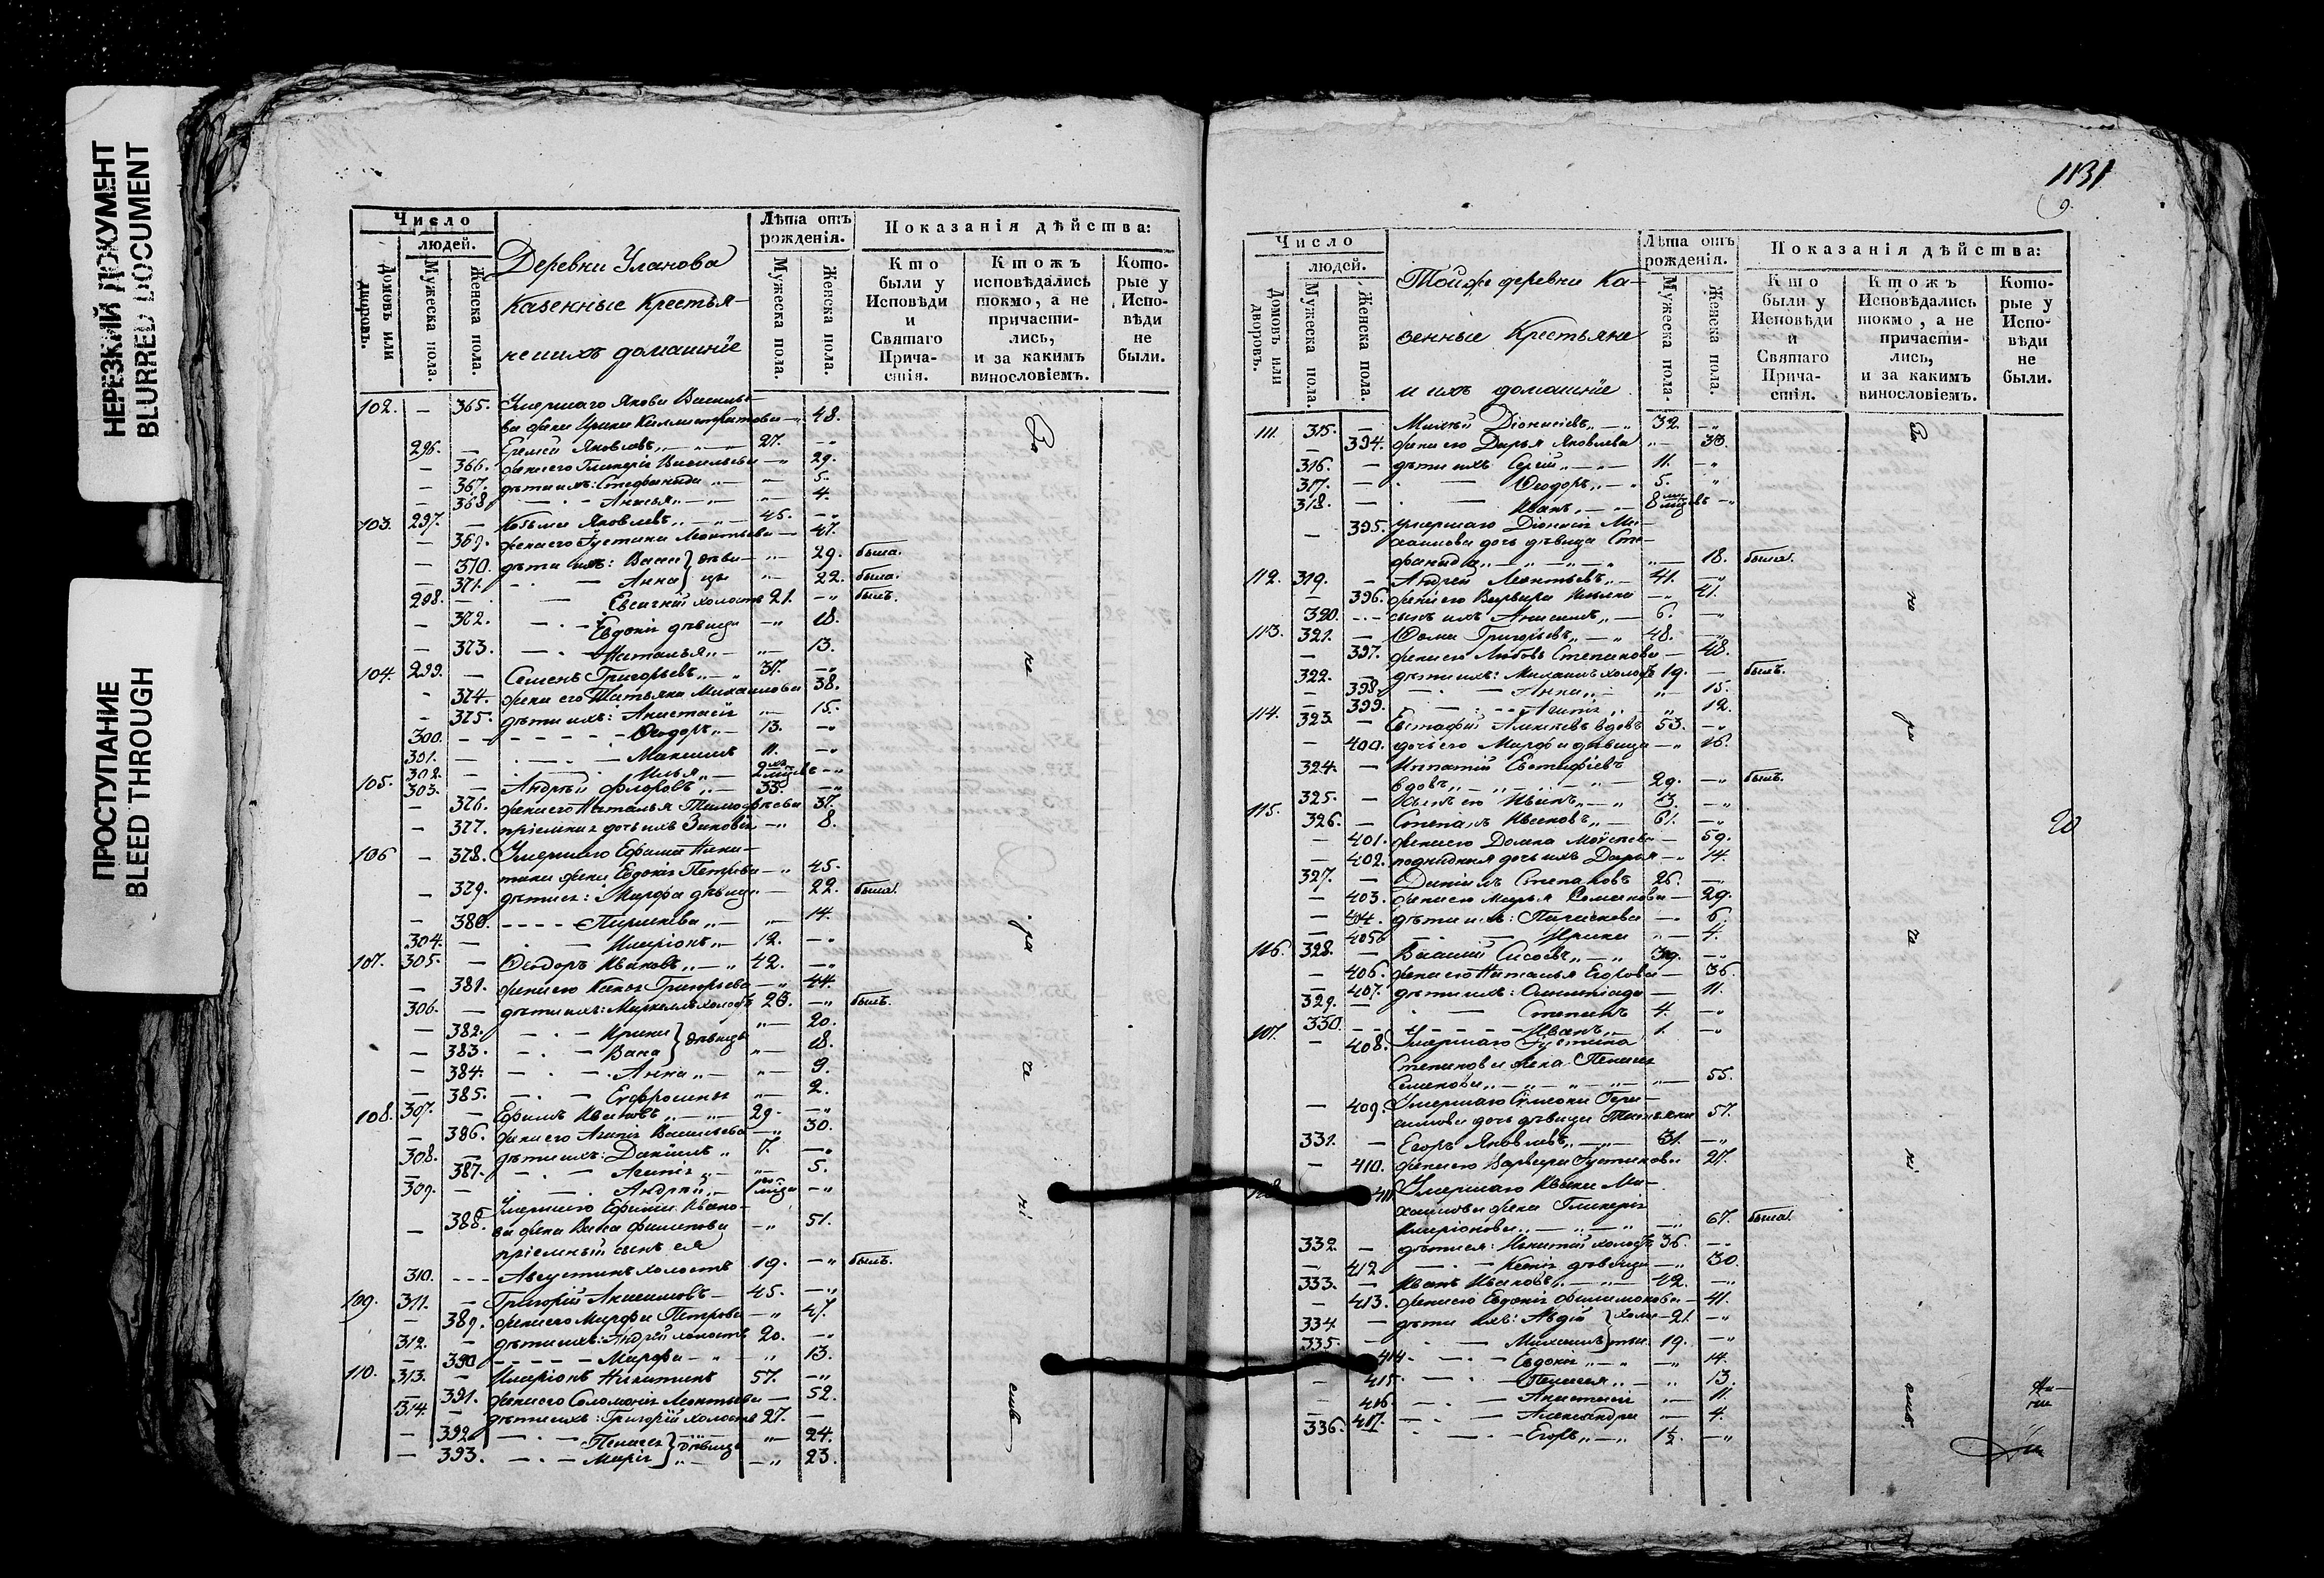 НЕРЕЗКИЙ ДОКУМЕНТ
BLURRED DOCUMENT
ПРОСТУПАНИЕ
BLEED THROUGH
Число
людей.
Домовъ или дворовъ.
Мужеска пола.
Женска пола.
Деревни Уланова
казенные Крестья-
не и ихъ домашніе
Лѣта отъ рожденія.
Мужеска пола.
Женска пола.
Показанія дѣйства:
Кто были у Исповѣди и Святаго Прича-стія.
Ктожъ исповѣдались токмо, а не причасти-лись, и за какимъ винословіемъ.
Кото-рые у Испо-вѣди не были.
102. — 365. Умершаго Якова Василье-
ва жена Ирина Каллистратова — 48.
296. — Еремей Яковлевъ 27.
— 366. жена его Гликерія Васильева 29.
— 367. дѣти ихъ: Стефанида 5.
— 368. Анисья 4.
103. 297. — Козьма Яковлевъ 45.
— 369. жена его Устинья Леонтьева 47.
— 370. дѣти ихъ: Васса дѣви- 29. была.
— 371. Анна цы 22. была.
298. Евсигній холостъ 21. былъ.
— 372. Евдокія дѣвица 18.
— 373. Наталья 13.
104. 299. — Семенъ Григорьевъ 37.
— 374. жена его Татьяна Михаилова 38.
— 375. дѣти ихъ: Анастасія 15.
300. Ѳеодоръ 13.
301. Максимъ 11.
302. Илья
105. 303. — Андрей Флоровъ 33.
— 376. жена его Наталья Тимоѳеева 37.
— 377. пріемная дочь ихъ Зиновія 8.
106 — 378. Умершаго Ефима Ники-
тина жена Евдокія Петрова 45.
— 379. дѣти ея: Марфа дѣвица 22. была.
— 380. Параскева 14.
304. Иларіонъ 12.
107. 305. — Ѳеодоръ Ивановъ 42.
— 381. жена его Ксенія Григорьева 44.
306. — дѣти ихъ: Маркеллъ холостъ 23. былъ.
— 382. Ирина дѣвицы 20.
— 383. Васса 18.
— 384. Анна 9.
— 385. Евфросинья 2.
108. 307. — Ефимъ Ивановъ 29.
— 386. жена его Агапія Васильева 30.
308. — дѣти ихъ: Даніилъ 7.
— 387. Агапія 5.
309. Андрей
— 388. Умершаго Ефима Ивано-
ва жена Васса Филипова 51.
пріемный сынъ ея
310. Августинъ холостъ 19. былъ.
109. 311. — Григорій Анисимовъ 45.
— 389. жена его Марфа Петрова 47.
312. — дѣти ихъ: Андрей холостъ 20.
— 390 Марфа 13.
110. 313. — Иларіонъ Никитинъ 57.
— 391. жена его Соломонія Леонтьева 52.
314. — дѣти ихъ: Григорій холостъ 27.
— 392. Пелагея дѣвицы 24.
— 393. Марія 23.
За
не
ра
че
ні
емъ
1131
9.
Число
людей.
Домовъ или дворовъ.
Мужеска пола.
Женска пола.
Тойже деревни Ка-
зенные Крестьяне
и ихъ домашніе
Лѣта отъ рожденія.
Мужеска пола.
Женска пола.
Показанія дѣйства:
Кто были у Исповѣди и Святаго Прича-стія.
Ктожъ Исповѣдались токмо, а не причасти-лись, и за какимъ винословіемъ.
Кото-рые у Испо-вѣди не были.
111. 315. — Діонисіевъ 32.
— 394. жена его Дарья Яковлева 33.
316. — дѣти ихъ Сергій 11.
317. — Ѳеодоръ 5.
318. — Иванъ 8
— 395. умершаго Діонисія Ми-
хаилова дочь дѣвица Сте-
фанида 18. была.
112. 319. — Андрей Леонтьевъ 41.
— 396. жена его Варвара Ильина 41.
320. сынъ ихъ Анисимъ 6.
113. 321. — Ѳома Григорьевъ 48.
— 397. жена его Любовь Степанова 48.
322. — дѣти ихъ: Михаилъ холостъ 19. былъ.
— 398. Анна 15.
— 399. Агапія 12.
114. 323. — Евстафій вдовъ 53.
— 400. дочь его Марфа дѣвица 16.
324. — Ипатій Евстафіевъ
вдовъ 29. былъ.
325. — сынъ его Иванъ 3.
115. 326. — Степанъ Ивановъ 61.
— 401. жена его Домна Моѵсеева 59.
— 402. подкидная дочь ихъ Дарья 14.
327. — Даніилъ Степановъ 26.
— 403. жена его Марья Романова 29.
— 404. дѣти ихъ: Параскева 6.
— 405. Ирина 4.
116. 328. — Василій Сисоевъ 39.
— 406. жена его Наталья Егорова 36.
— 407. дѣти ихъ: Олимпіада 11.
329. — Степанъ 4.
330. Иванъ 1.
— 408. Умершаго Устина
Степанова жена Пелагея
Семенова 55.
— 409. Умершаго Симеона Гера-
симова дочь дѣвица Татьяна 57.
331. — Егоръ Яковлевъ 31.
— 410. жена его Варвара Устинова 27.
411 Умершаго Ивана Ми-
хаилова жена Гликерія
Иларіонова 67. была.
332. — дѣти ея: Игнатій холостъ 36.
— 412. Ксенія дѣвица 30.
333. — Иванъ Ивановъ 42.
— 413. жена его Евдокія Филимонова 41.
334. — дѣти ихъ: Авдій холо- 21.
335. — Михаилъ сты 19.
414. Евдокія 14.
— 415. Пелагея 13.
— 416. Анастасія 11
— 417. Александра 4.
336. Егоръ 1½.
За
не
ра
че
ні
емъ.
20